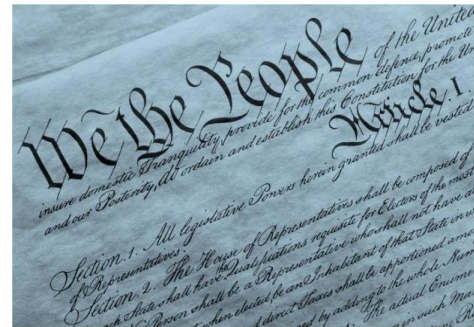 We the People of the United
insure domestic Tranquility, provide for the common defence, promote
and our Posterity, do ordain and establish this Constitution for the U
Article. I.
Section. 1. All legislative Powers herein granted shall be vested
of Representatives.
Section. 2. The House of Representatives shall be composed of
ch State shall have the Qualifications requisite for Electors of the most
Person shall be a Representative who shall not have
when elected, be an Inhabitant of that State in
direct Taxes shall be apportioned amo
by adding to the whole Num
The actual Enum